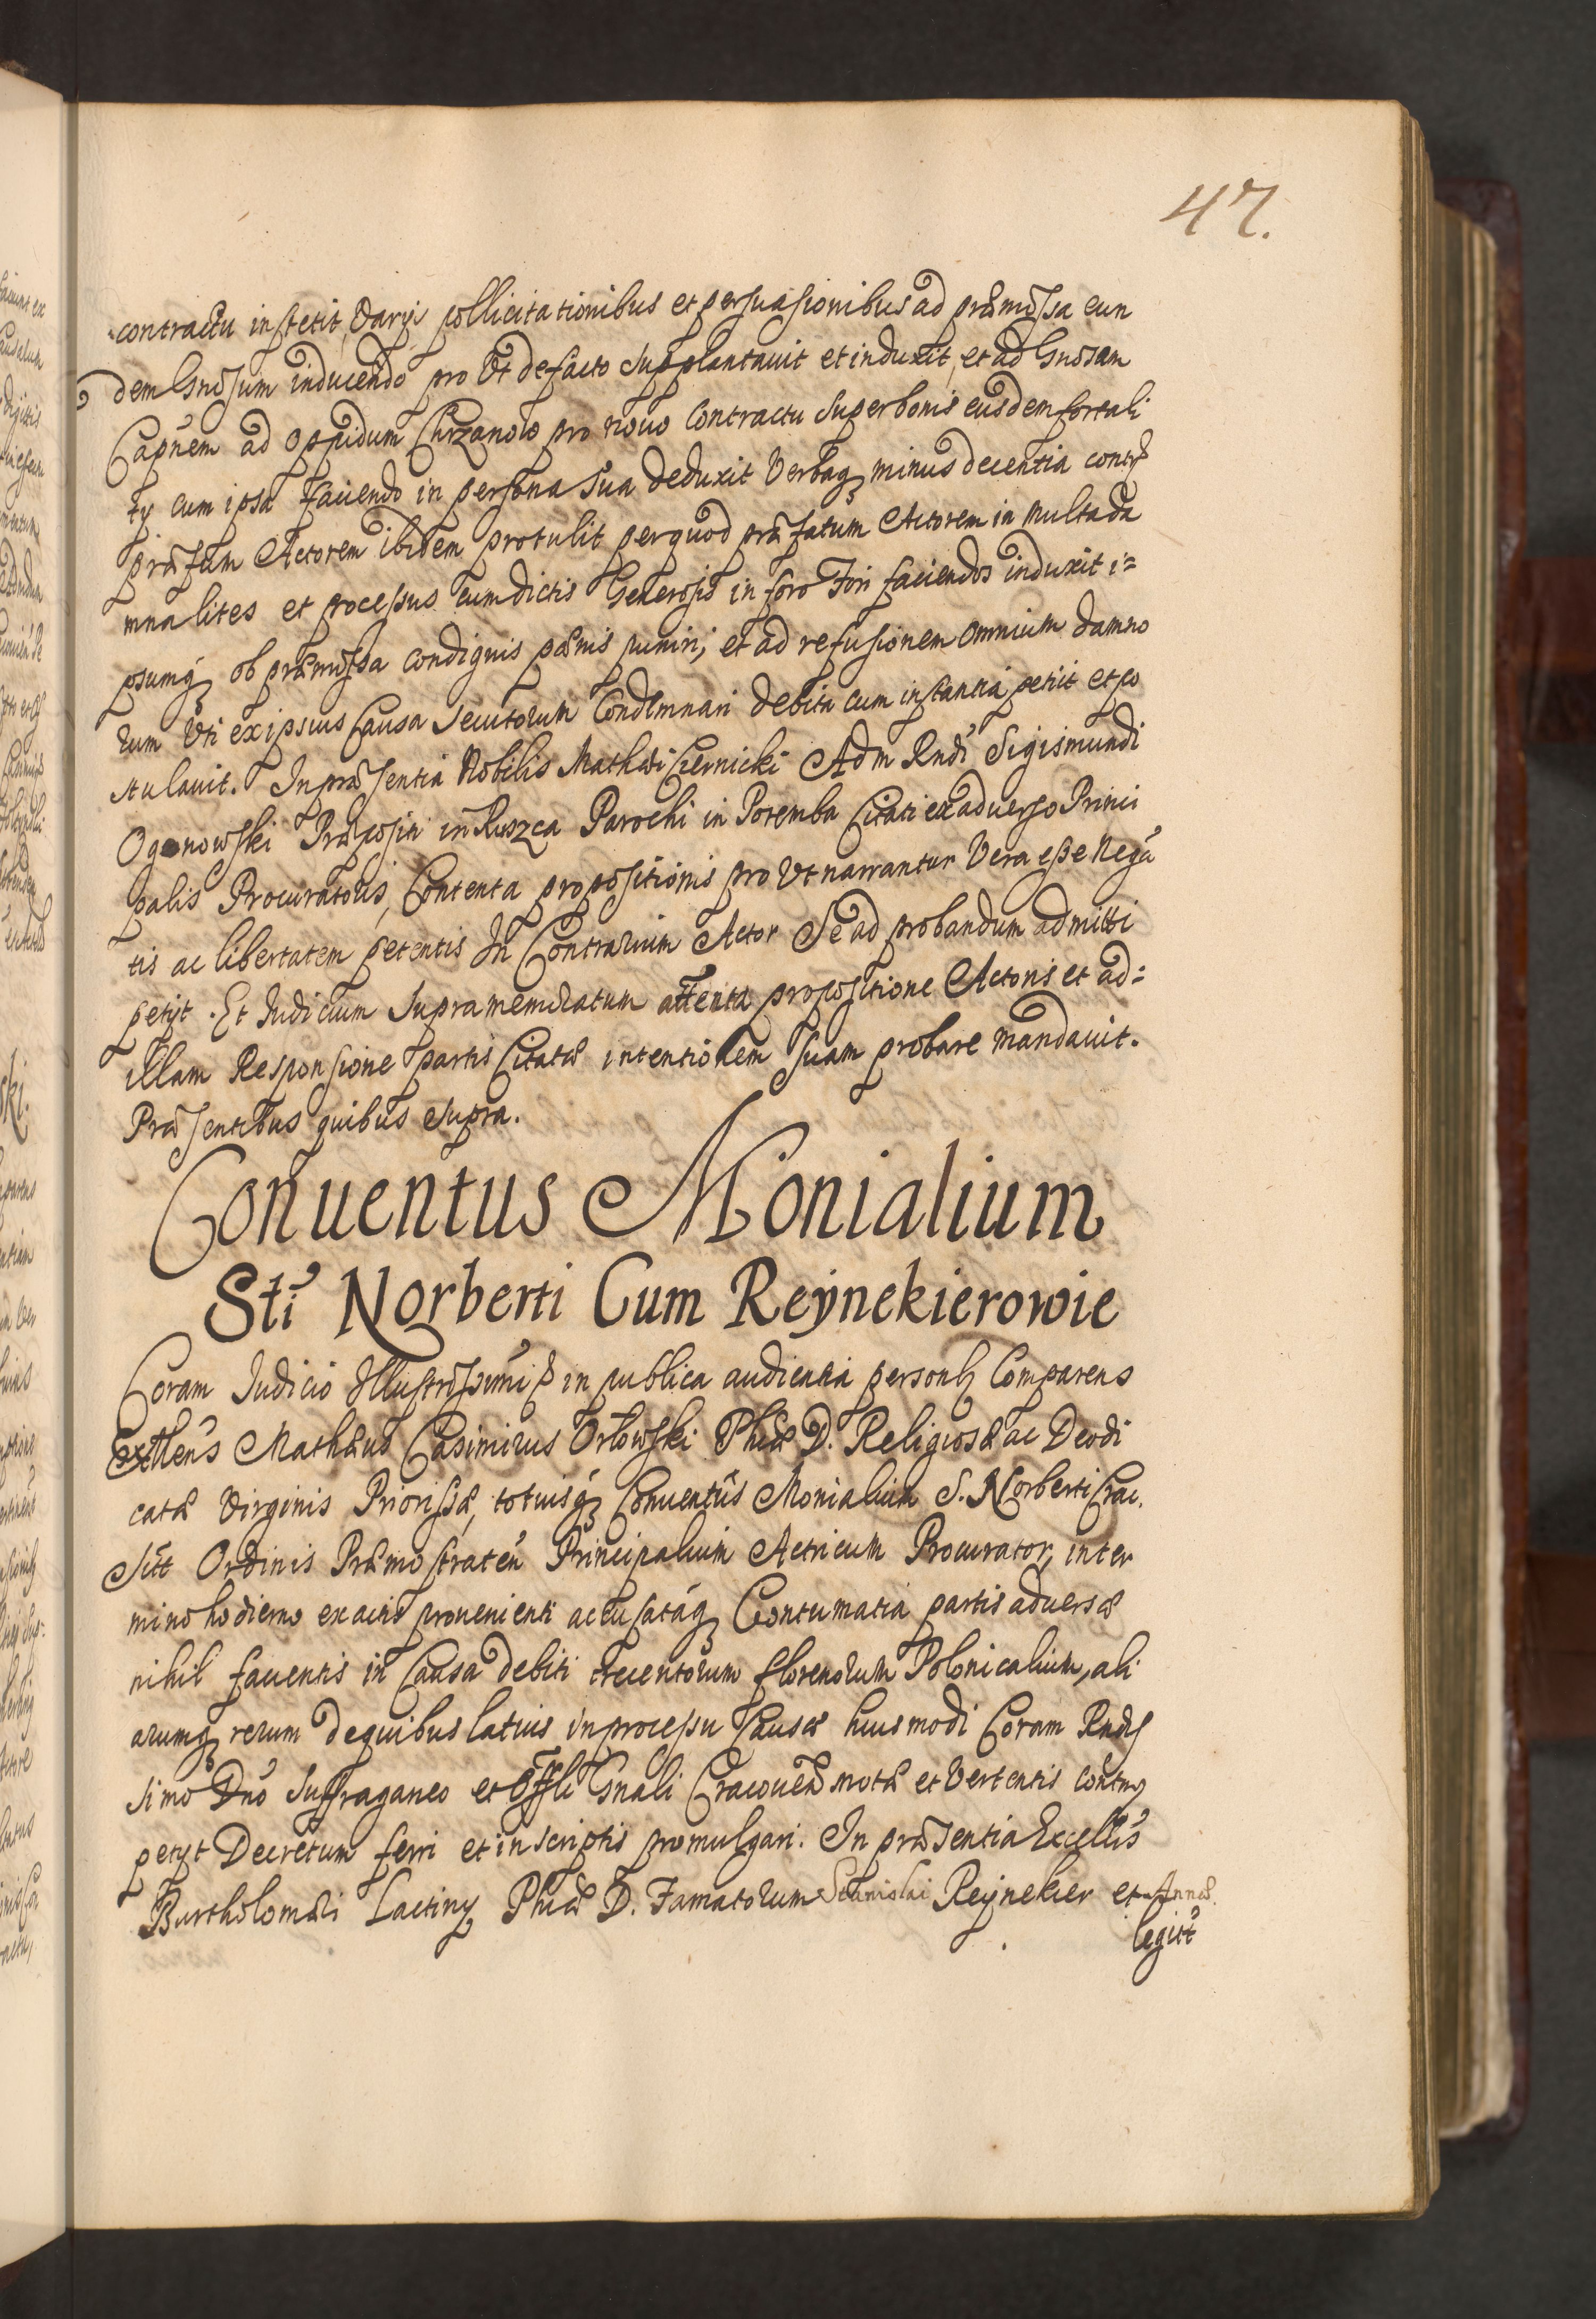 47.
contractu institit, varijs pollicitationibus et persuasionibus ad præmissa eun
dem Gnõsum inducendo pro Ut de facto supplantauit et induxit, et ad Gnõsam
Capñem ad oppidum Chrzanow pro nouo Contractu super bonis eiusdem fortali
ty cum ipsa faciendo in persona sua deduxit Verbaq minus decentia contra
præfatum Actorem ibidem protulit per quod præfatum Actorem in multa da
mna lites et processus cum dictis Generosis in foro Fori faciendos induxit i=
psumq ob præmissa condignis pænis puniri; et ad refusionem omnium damno
rum Uti ex ipsius Causa secutorum Condemnari debita cum instantia petiit et po
stulauit. In præsentia Nobilis Mathæi Ciernicki Adm Rndi Sigismundi
Ogonowski Præpositi in Ruszca Parochi in Poremba Citati ex aduerso Princi
palis Procuratoris, Contenta propositionis pro Ut narrantur Vera esse Negã
tis ac libertatem petentis In Contrarium Actor Se ad probandum admitti
petyt. Et Iudicium supramemoratum attenta propositione Actoris et ad=
illam Responsione partis Citatæ intentionem suam probare mandauit.
Præsentibus quibus supra.
Conuentus Monialium
Sti Norberti Cum Reÿnekierowie
Coram Iudicio Illustrissimi in publica audientia personlr Comparens
Excllens Mathæus Casimirus Orłowski Phiæ D. Religiosæ ac Deodi
catæ Virginis Priorissæ, totiusq Conuentûs Monialium S. Norberti Crac.
Sitt Ordinis Præmonstraten Principalium Actricum Procurator, in ter
mino hodierno ex actis prouenienti accusatáq Contumatia partis aduersæ
nihil facientis in Causa debiti trecentorum florenorum Polonicalium, ali
arumq rerum de quibus latius in processu Causæ huiusmodi Coram Rndis
simo Dno Suffraganeo et Offli Gnali Cracouen motæ et Vertentis
petyt Decretum ferri et in scriptis promulgari. In præsentia Excellis
Bartholomæi Lactiny Phiæ D. Famatorum Stanislai Reÿnekier et Annæ
legitt